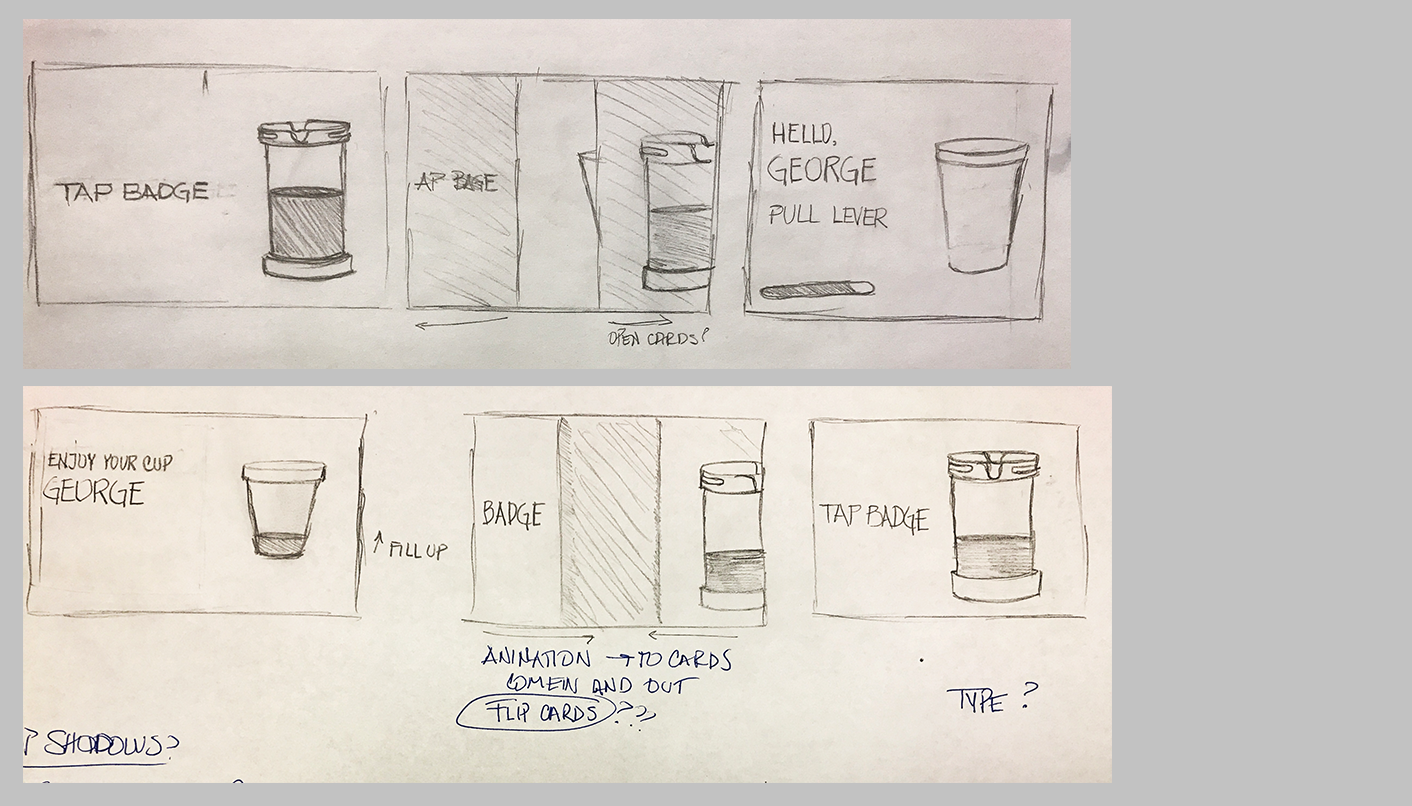 TAP BADGE
AP BAGE
OPEN CARDS?
HELLO,
GEORGE
PULL LEVER
ENJOY YOUR CUP
GEORGE
↑ FILL UP
BADGE
ANIMATION → TO CARDS
COMEIN AND OUT
FLIP CARDS ???
TAP BADGE
TYPE ?
? SHADOWS?